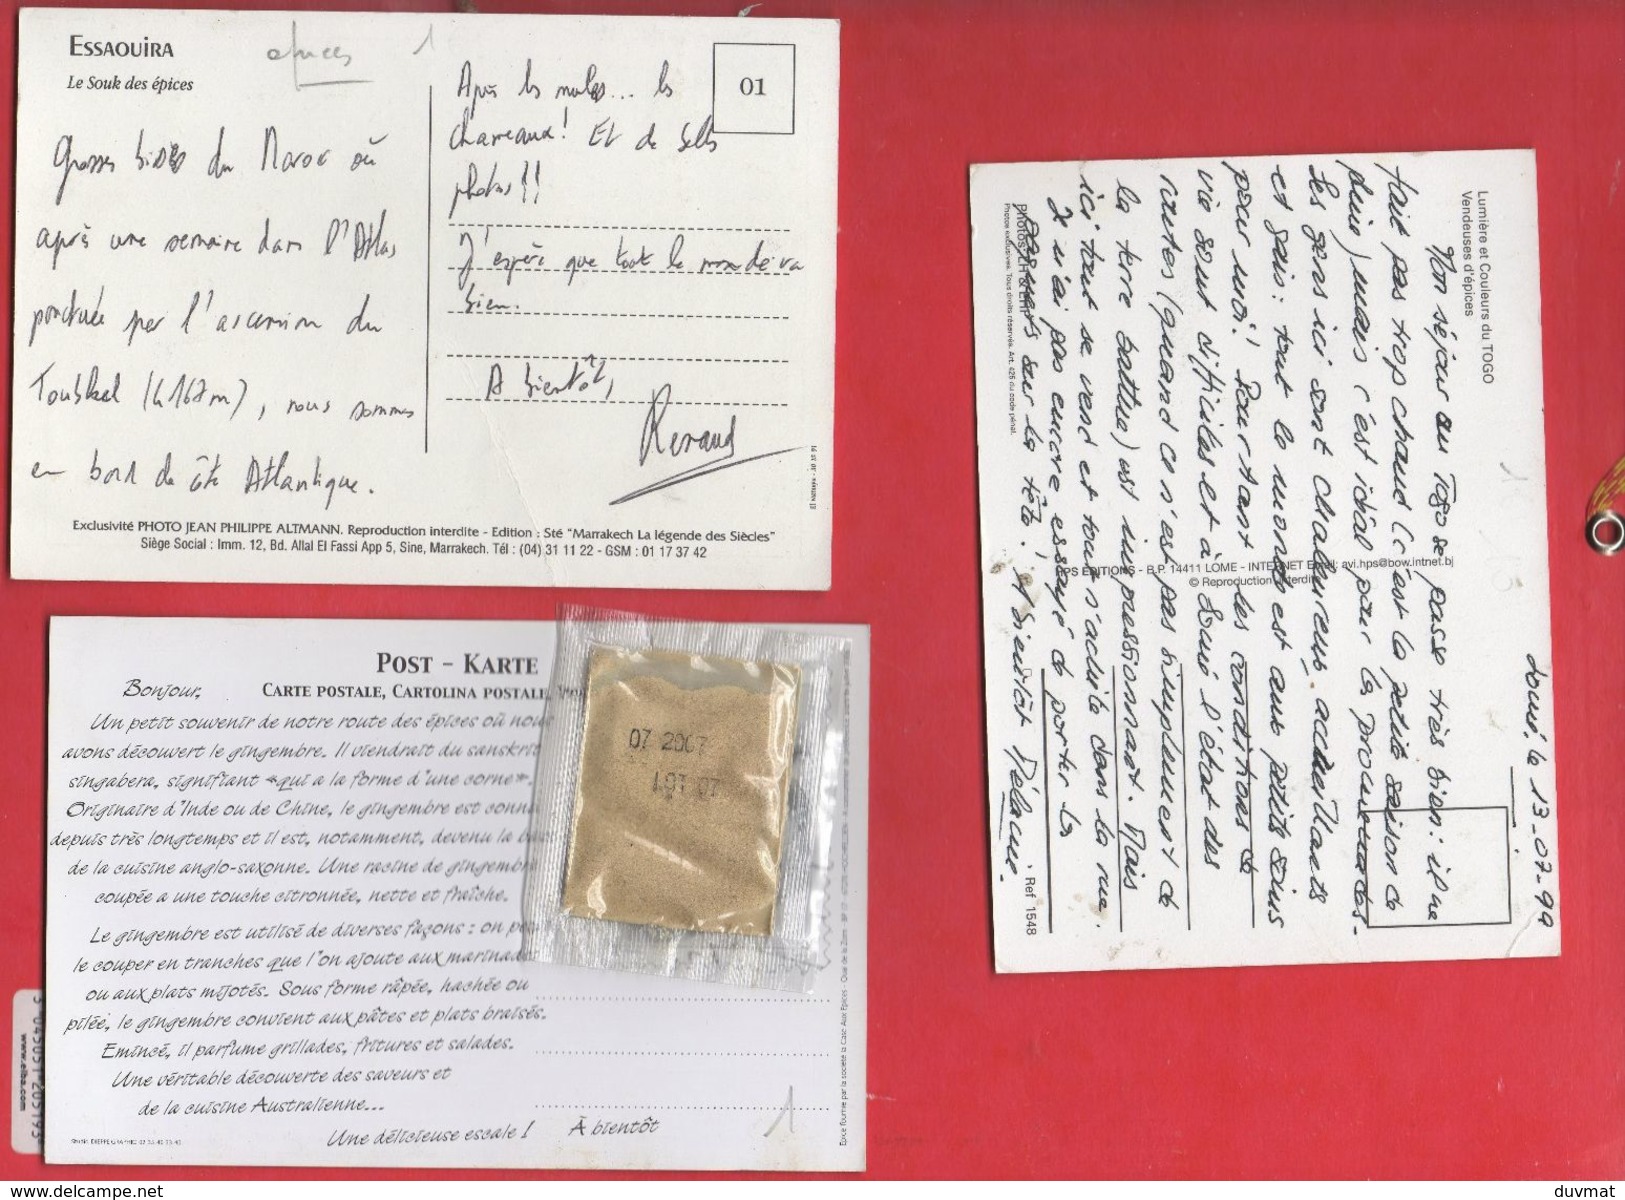 ESSAOUIRA
Le Souk des épices
épices 1
01
Grosses bises du Maroc où
après une semaine dans l'Atlas
ponctuée par l'ascension du
Toubkal (4167m), nous sommes
en bord de côte Atlantique.
Après les mules... les
chameaux! Et de belles
photos!!
J'espère que tout le monde va
bien.
A bientôt,
Renaud
Exclusivité PHOTO JEAN PHILIPPE ALTMANN. Reproduction interdite - Edition : Sté "Marrakech La légende des Siècles"
Siège Social : Imm. 12, Bd. Allal El Fassi App 5, Sine, Marrakech. Tél : (04) 31 11 22 - GSM : 01 17 37 42
POST - KARTE
CARTE POSTALE, CARTOLINA POSTALE,
Bonjour,
Un petit souvenir de notre route des épices où nous
avons découvert le gingembre. Il viendrait du sanskrit
singabera, signifiant «qui a la forme d'une corne».
Originaire d'Inde ou de Chine, le gingembre est connu
depuis très longtemps et il est, notamment, devenu la
de la cuisine anglo-saxonne. Une racine de gingembre
coupée a une touche citronnée, nette et fraîche.
Le gingembre est utilisé de diverses façons : on
le couper en tranches que l'on ajoute aux
ou aux plats mijotés. Sous forme râpée, hachée ou
pilée, le gingembre convient aux pâtes et plats braisés.
Emincé, il parfume grillades, fritures et salades.
Une véritable découverte des saveurs et
de la cuisine Australienne...
Une délicieuse escale ! À bientôt
1
07 2007
L07 07
Epice fournie par la société la Case Aux Epices
www.elba.com
Lumière et Couleurs du TOGO
Vendeuses d'épices
1
Lomé, le 13-07-99
Mon séjour au Togo se passe très bien : il ne
fait pas trop chaud (c'est la petite saison de
pluie) mais c'est idéal pour la promenades.
Les gens ici sont chaleureux, accueillants
et gais : tout le monde est aux petits soins
pour moi! Pourtant les conditions de
vie sont difficiles et à Lomé l'état des
routes (quand ce n'est pas simplement de
la terre battue) est impressionnant. Mais
ici tout se vend et tout s'achète dans la rue.
Je n'ai pas encore essayé de porter les
paquets sur la tête! A bientôt
HPS EDITIONS - B.P. 14411 LOME - INTERNET Email: avi.hps@bow.intnet.bj
© Reproduction interdite
Photos exclusives. Tous droits réservés. Art. 425 du code pénal.
Ref 1548
www.delcampe.net
duvmat